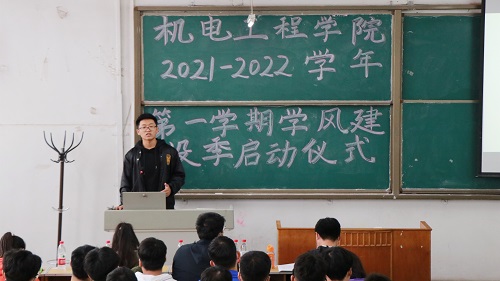 机电工程学院
2021-2022学年
第一学期学风建
设季启动仪式